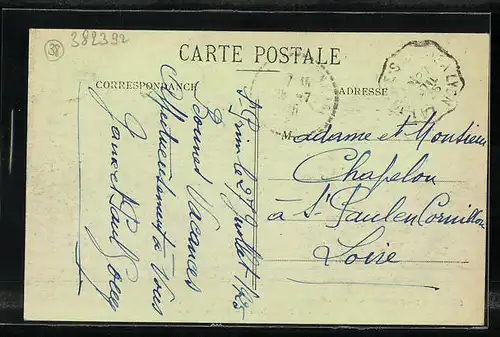 38
382392
CARTE POSTALE
CORRESPONDANCE
ADRESSE
St Prim le 27 Juillet 1925
Bonnes Vacances
Affectueusement à Vous
Jeanne et Paul
M adame et Monsieur
Chapelon
à St Paul en Cornillon
Loire